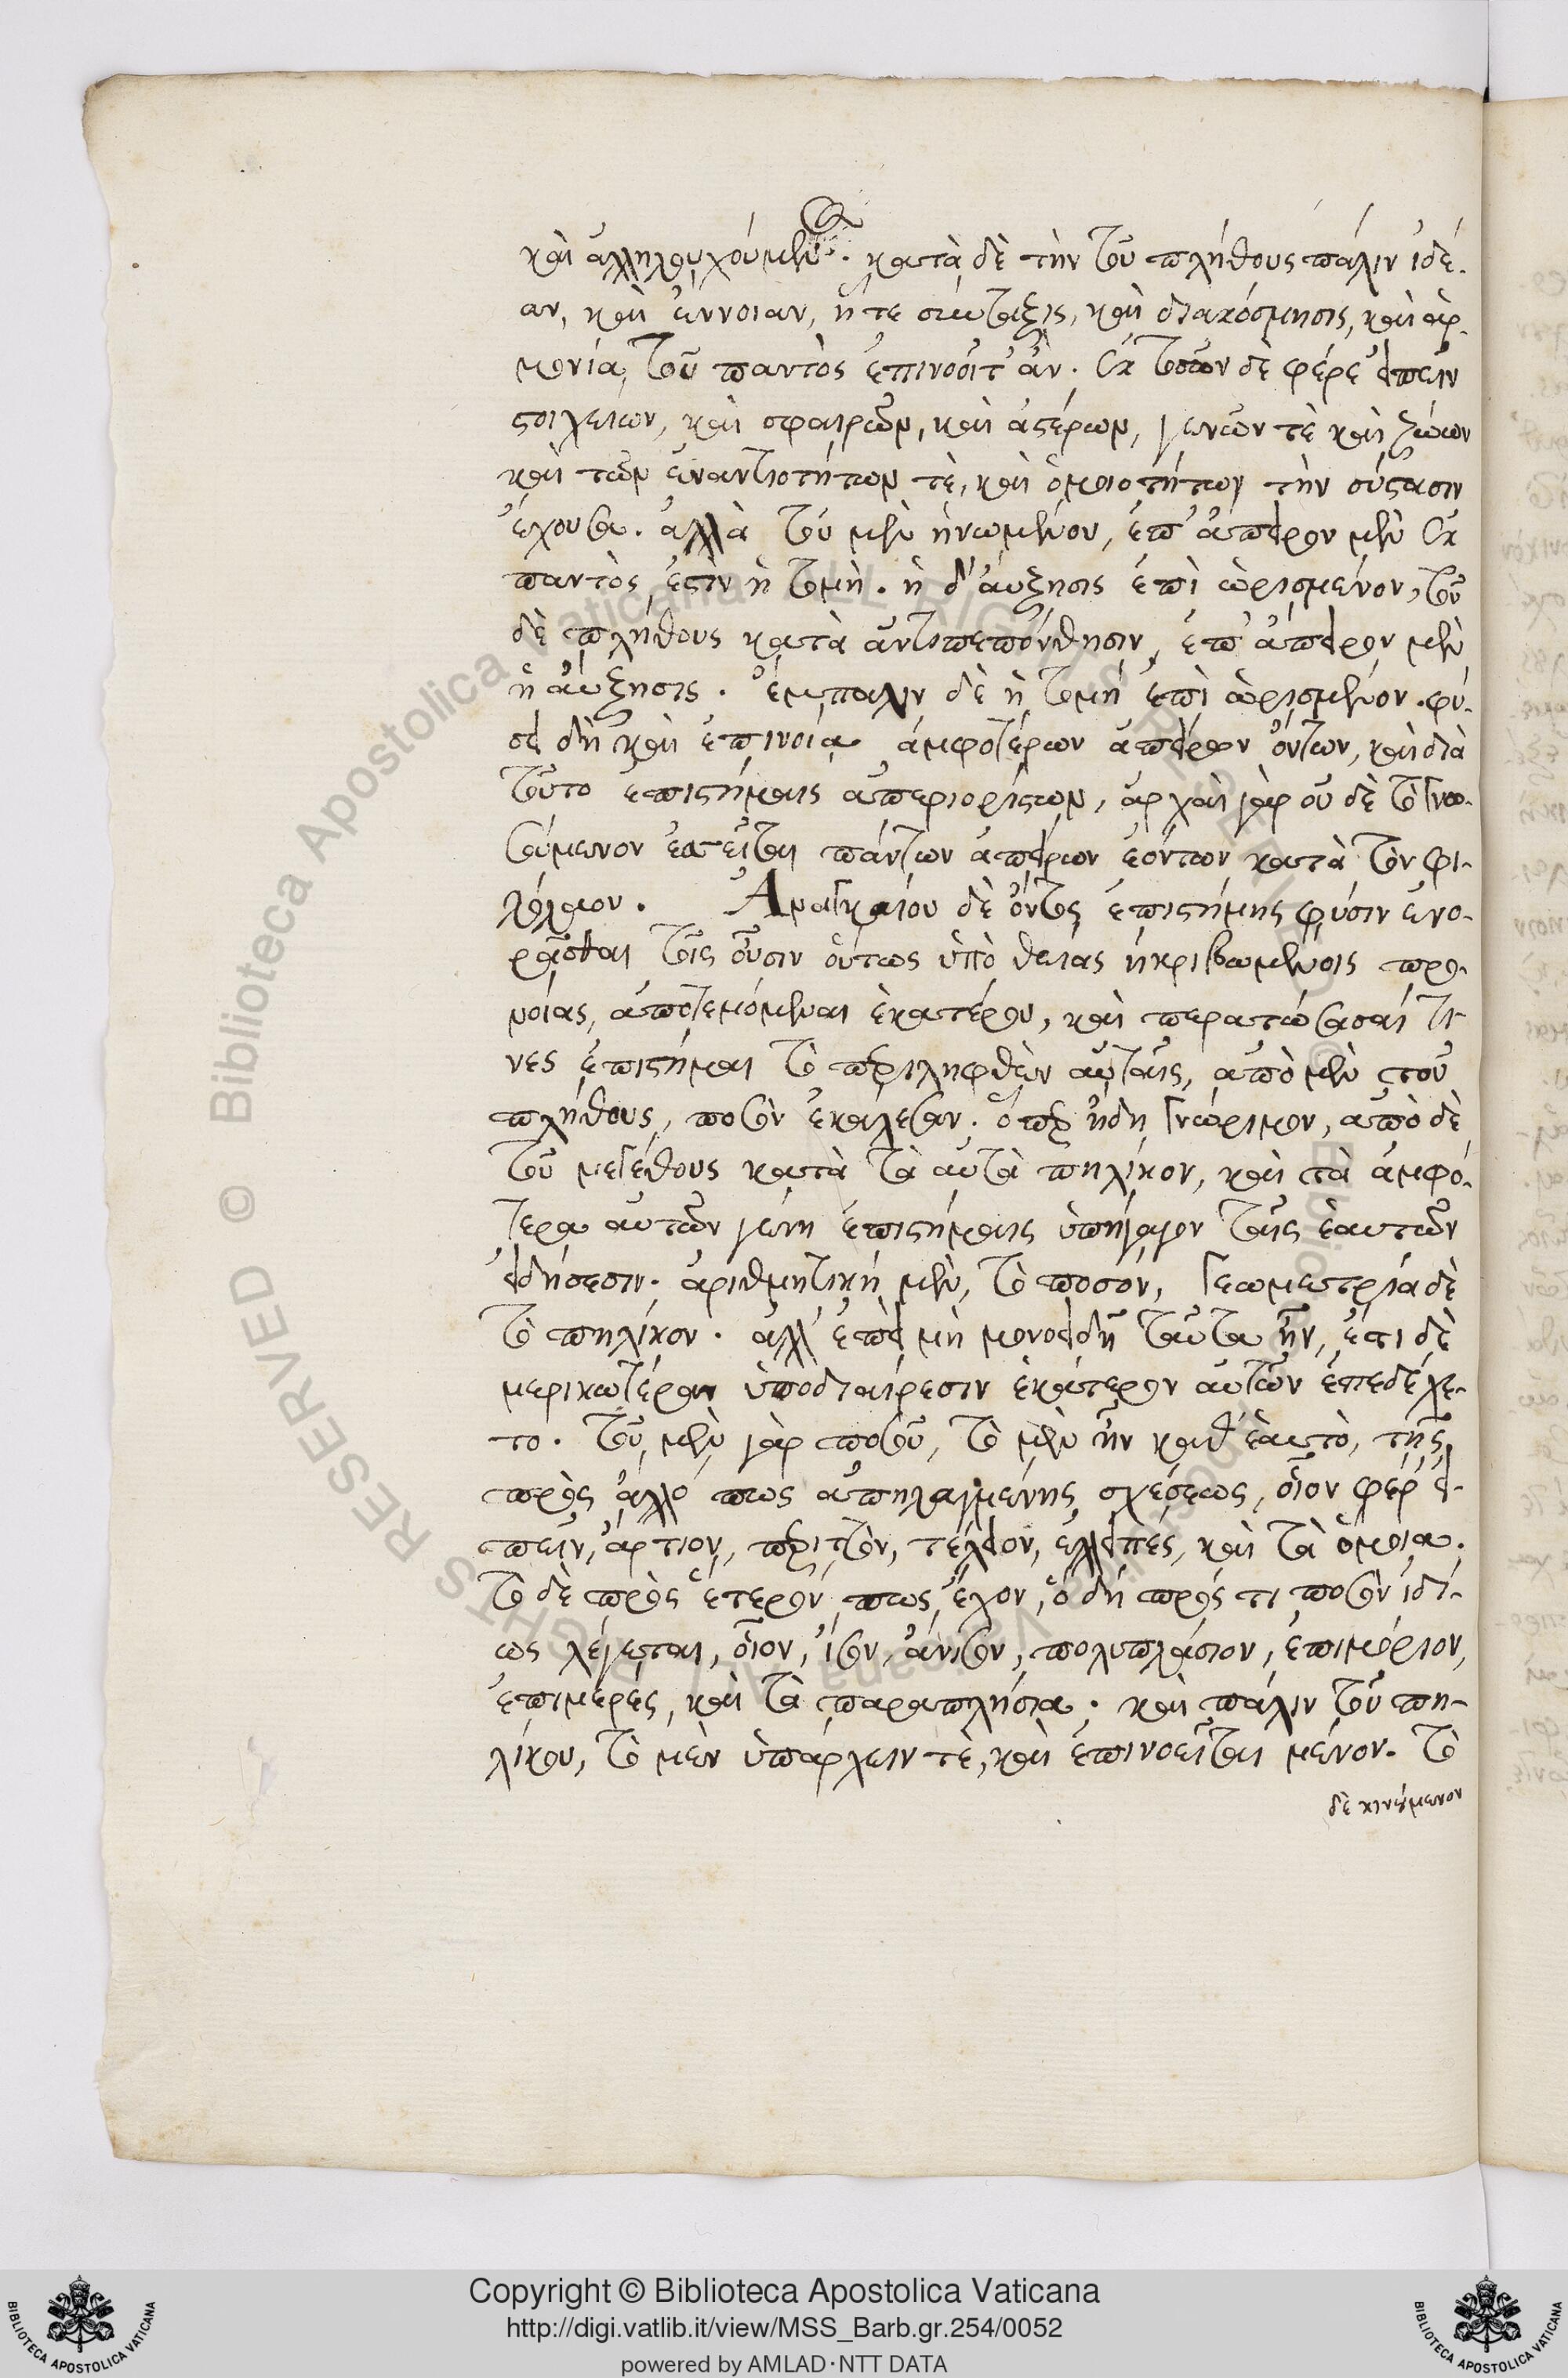 καὶ ἀλληλουχούμενα. κατὰ δὲ τὴν τοῦ πλήθους πάλιν ἰδέ-
αν, καὶ ἔννοιαν, ἥ τε σύνταξις, καὶ διακόσμησις, καὶ ἁρ-
μονία τοῦ παντὸς ἐπινοοῖτ' ἂν. ἐκ τόσων δὲ φέρε εἰπεῖν
στοιχείων, καὶ σφαιρῶν, καὶ ἀστέρων, γενῶν τὲ καὶ ζώων
καὶ τῶν ἐναντιοτήτων τὲ, καὶ ὁμοιοτήτων τὴν σύστασιν
ἔχουσα. ἀλλὰ τοῦ μὲν ἡνωμένον, ἐπ' ἄπειρον μὲν ἐκ
παντὸς ἐστὶν ἡ τομὴ. ἡ δ' αὔξησις ἐπὶ ὡρισμένον, τοῦ
δὲ πλήθους κατὰ ἀντιπεπόνθησιν, ἐπ' ἄπειρον μὲν
ἡ αὔξησις. ἔμπαλιν δὲ ἡ τομὴ ἐπὶ ὡρισμένον. φύ-
σει δὴ καὶ ἐπινοία ἀμφοτέρων ἀπείρων ὄντων, καὶ διὰ
τοῦτο ἐπιστήμαις ἀπεριορίστων, ἀρχαὶ γὰρ οὐ δὲ τὸ γνω-
σούμενον ἐσσεῖται πάντων ἀπείρων ἐόντων κατὰ τὸν φι-
λόλαον. Ἀναγκαίου δὲ ὄντος ἐπιστήμης φύσιν ἐνο-
ρᾶσθαι τοῖς οὖσιν οὕτως ὑπὸ θείας ἠκριβωμένοις προ-
νοίας, ἀποτεμόμεναι ἑκατέρου, καὶ περατώσασαί τι-
νες ἐπιστήμαι τὸ περιληφθὲν αὐταῖς, ἀπὸ μὲν τοῦ
πλήθους, ποσὸν ἐκάλεσαν. ὅπερ ἤδη γνώριμον, ἀπὸ δὲ
τοῦ μεγέθους κατὰ τὰ αὐτὰ πηλίκον, καὶ τὰ ἀμφό-
τερα αὐτῶν γένη ἐπιστήμαις ὑπήγαγον ταῖς ἑαυτῶν
εἰδήσεσιν. ἀριθμητικῇ μὲν, τὸ ποσόν, γεωμετρία δὲ
τὸ πηλίκον. ἀλλ' ἐπεὶ μὴ μονοειδῆ ταῦτα ἦν, ἔτι δὲ
μερικωτέραν ὑποδιαίρεσιν ἑκάτερον αὐτῶν ἐπεδέχε-
το. τοῦ μὲν γὰρ ποσοῦ, τὸ μὲν ἦν καθ' ἑαυτὸ, τῆς
πρὸς ἄλλό πως ἀπηλαγμένης σχέσεως, οἷον φέρ' εἰ-
πεῖν, ἄρτιον, περιττὸν, τέλειον, ἐλλειπές, καὶ τὰ ὅμοια.
τὸ δὲ πρὸς ἕτερόν πως ἔχον, ὃ δὴ πρός τι ποσὸν ἰδί-
ως λέγεται, οἷον, ἴσον, ἄνισον, πολυπλάσιον, ἐπιμόριον,
ἐπιμερές, καὶ τὰ παραπλήσια. καὶ πάλιν τοῦ πη-
λίκου, τὸ μὲν ὑπάρχειν τὲ, καὶ ἐπινοεῖται μένον. τὸ
δὲ κινούμενον
© Biblioteca Apostolica Vaticana ALL RIGHTS RESERVED
Copyright © Biblioteca Apostolica Vaticana
http://digi.vatlib.it/view/MSS_Barb.gr.254/0052
powered by AMLAD·NTT DATA
BIBLIOTECA APOSTOLICA VATICANA
BIBLIOTECA APOSTOLICA VATICANA